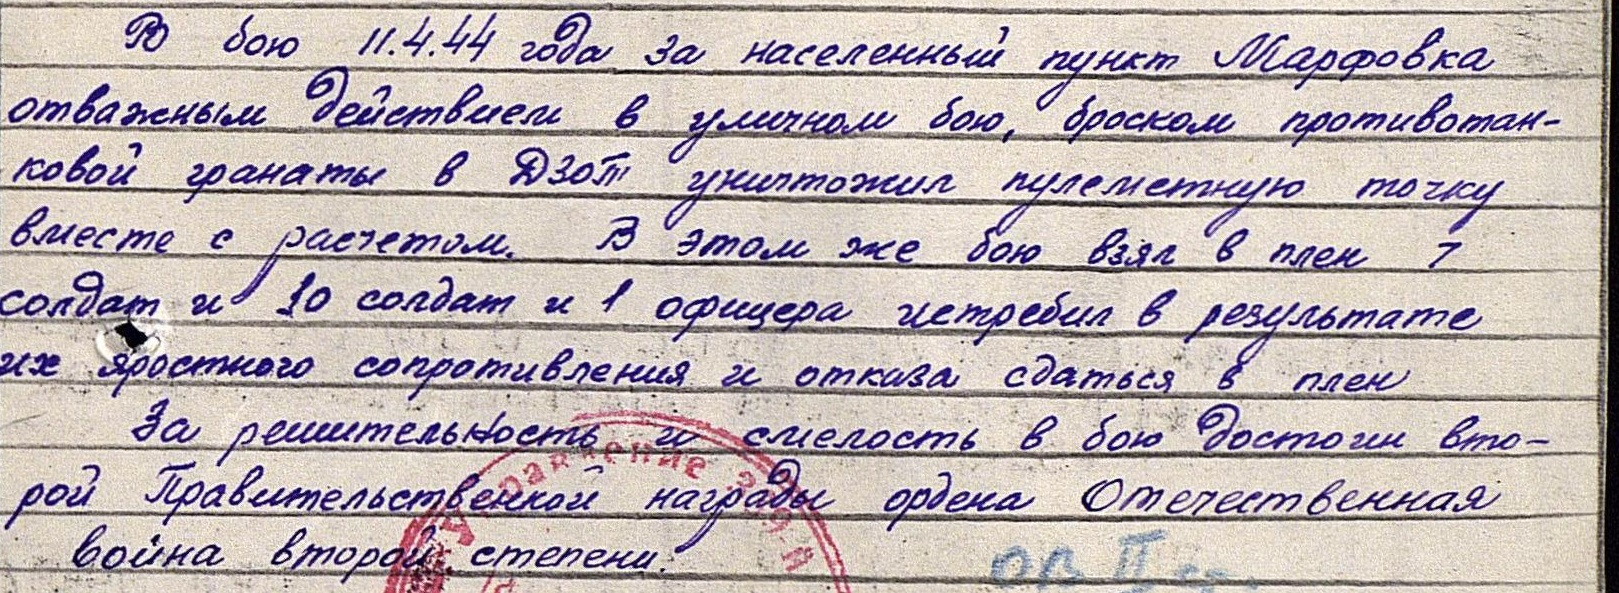 В бою 11.4.44 года за населенный пункт Марфовка
отважным действием в уличном бою, броском противотан-
ковой гранаты в ДЗОТ уничтожил пулеметную точку
вместе с расчетом. В этом же бою взял в плен 7
солдат и 10 солдат и 1 офицера истребил в результате
их яростного сопротивления и отказа сдаться в плен
За решительность и смелость в бою достоин вто-
рой Правительственной награды ордена Отечественная
война второй степени.
Управление
ОВ II ст.